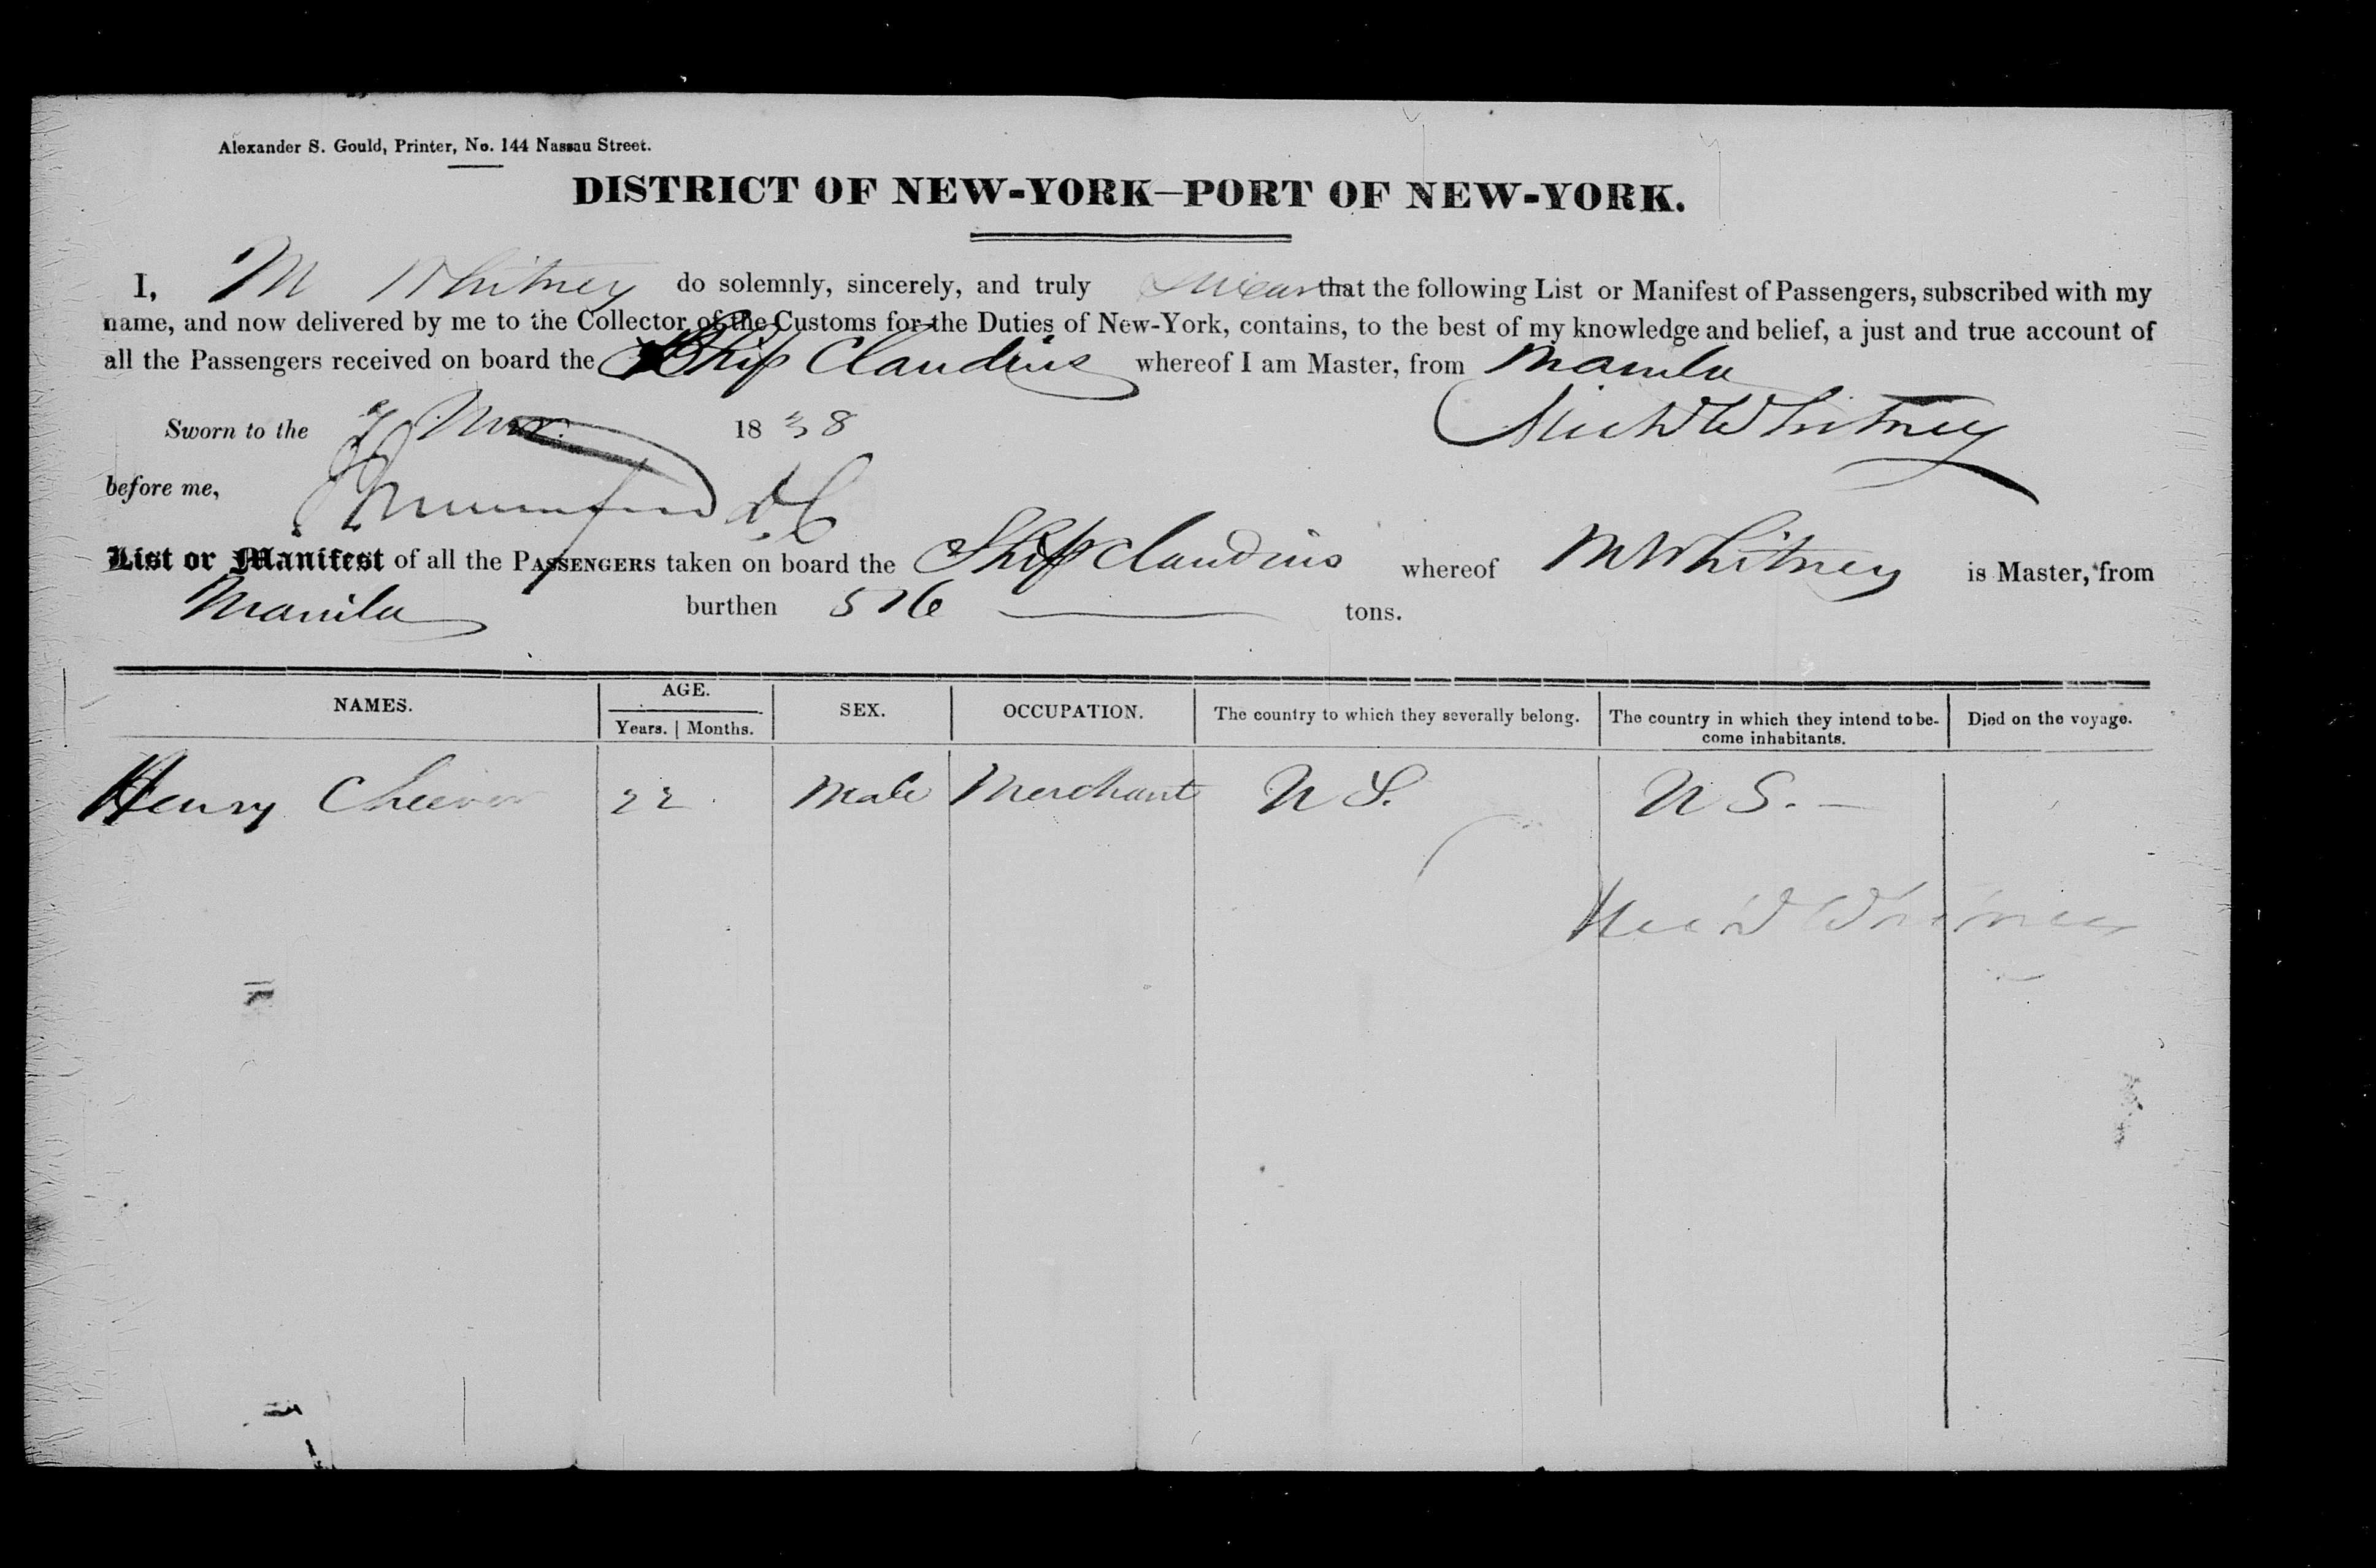 Alexander S. Gould, Printer, No. 144 Nassau Street.
DISTRICT OF NEW-YORK—PORT OF NEW-YORK.
I, M Whitney do solemnly, sincerely, and truly swear that the following List or Manifest of Passengers, subscribed with my
name, and now delivered by me to the Collector of the Customs for the Duties of New-York, contains, to the best of my knowledge and belief, a just and true account of
all the Passengers received on board the Ship Claudius whereof I am Master, from Manila
Sworn to the 1838 Whitney
before me, D.C
List or Manifest of all the PASSENGERS taken on board the Ship Claudius whereof M Whitney is Master, from
Manila burthen 516 tons.
NAMES. AGE. SEX. OCCUPATION. The country to which they severally belong. The country in which they intend to be- Died on the voyage.
Years. | Months. come inhabitants.
Henry Cheever 22 Male Merchant U S. U S. —
Whitney